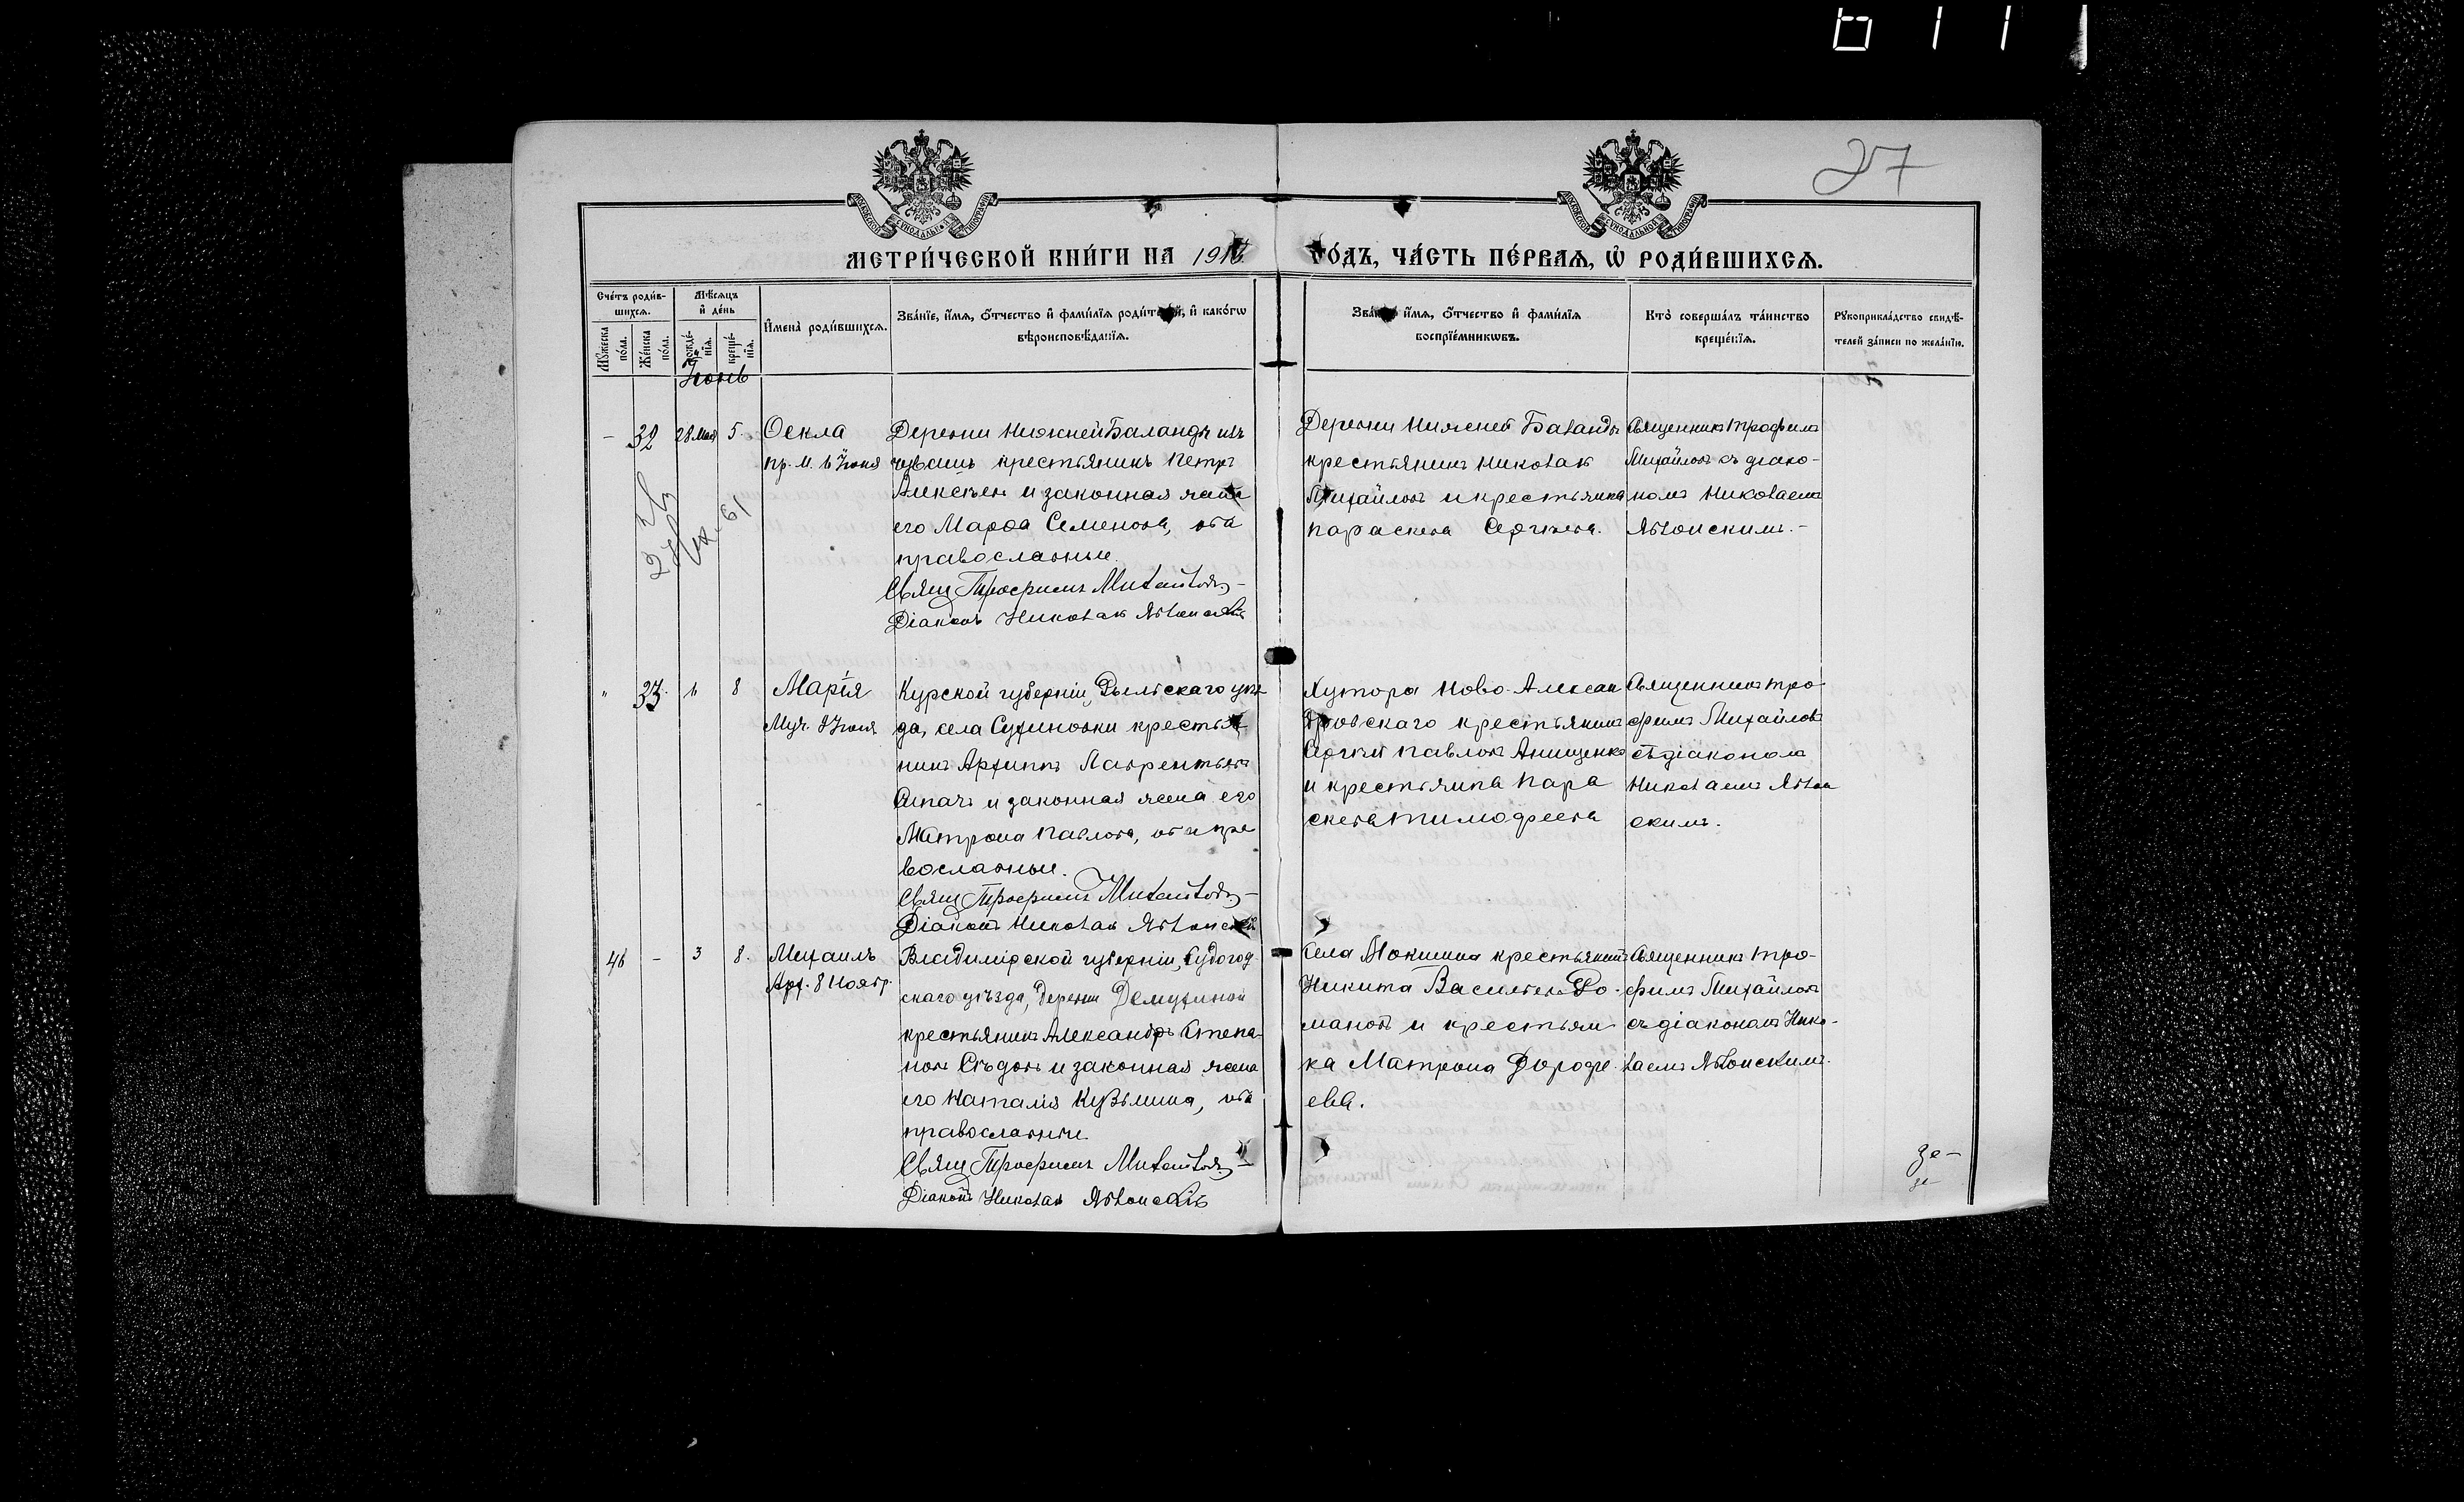 27
МЕТРИ́ЧЕСКОЙ КНИ́ГИ НА 191
ГО́ДЪ, ЧА́СТЬ ПЕ́РВАЯ, Ѡ҆ РОДИ́ВШИХСЯ.
Сче́тъ роди́в-
шихся.
Мꙋ́жеска по́ла.
Же́нска по́ла.
Мѣ́сяцъ
и҆ де́нь
рожде́-нїя.
креще́-нїя.
И҆мена̀ роди́вшихся.
Зва́нїе, и҆́мя, ѻ҆́тчество и҆ фами́лїя роди́телей, и҆ како́гѡ
вѣроисповѣ́данїя.
Зва́нїе, и҆́мя, ѻ҆́тчество и҆ фами́лїя
воспрїе́мникѡвъ.
Кто̀ соверша́лъ та́инство
креще́нїя.
Рꙋкоприкла́дство свидѣ́-
телей за́писи по жела́нїю.
Іюнь
- 32 28 Мая 5.
Ѳекла
пр. м. 6 Іюня
Деревни Нижней Баландъ изъ
чувашъ крестьянинъ Петръ
Алексѣевъ и законная жена
его Марѳа Семенова, оба
православные.
Свящ Трофимъ Михайловъ -
Діаконъ Николай Яблонскій
Деревни Нижней Баланды
крестьянинъ Николай
Михайловъ и крестьянка
Параскева Сергѣева.
Священникъ Трофимъ
Михайловъ съ діако-
номъ Николаемъ
Яблонскимъ. -
" 33. 6 8
Марія
Муч. 8 Іюня
Курской губерніи, Рыльскаго уѣз
да, села Сухиновки крестья-
нинъ Архиппъ Лаврентьевъ
и законная жена его
Матрона Павлова, оба пра
вославные.
Свящ Трофимъ Михайловъ -
Діаконъ Николай Яблонскій
Хутора Ново-Алексан
дровскаго крестьянинъ
Сергѣй Павловъ Анищенко
и крестьянка Пара
скева Тимофеева
Священникъ Тро-
фимъ Михайловъ
съ діакономъ
Николаемъ Яблон
скимъ.
46 - 3 8.
Михаилъ
Арх. 8 Ноябр.
Владимірской губерніи, Судогод-
скаго уѣзда, деревни Демухиной
крестьянинъ Александръ Степа-
новъ Сѣдовъ и законная жена
его Наталія Кузьмина, оба
православные.
Свящ Трофимъ Михайловъ -
Діаконъ Николай Яблонскій
Села Мокшина крестьянинъ
Никита Васильевъ Ро-
мановъ и крестьян-
ка Матрона Дорофе-
ева.
Священникъ Тро-
фимъ Михайловъ
съ діакономъ Нико-
лаемъ Яблонскимъ.